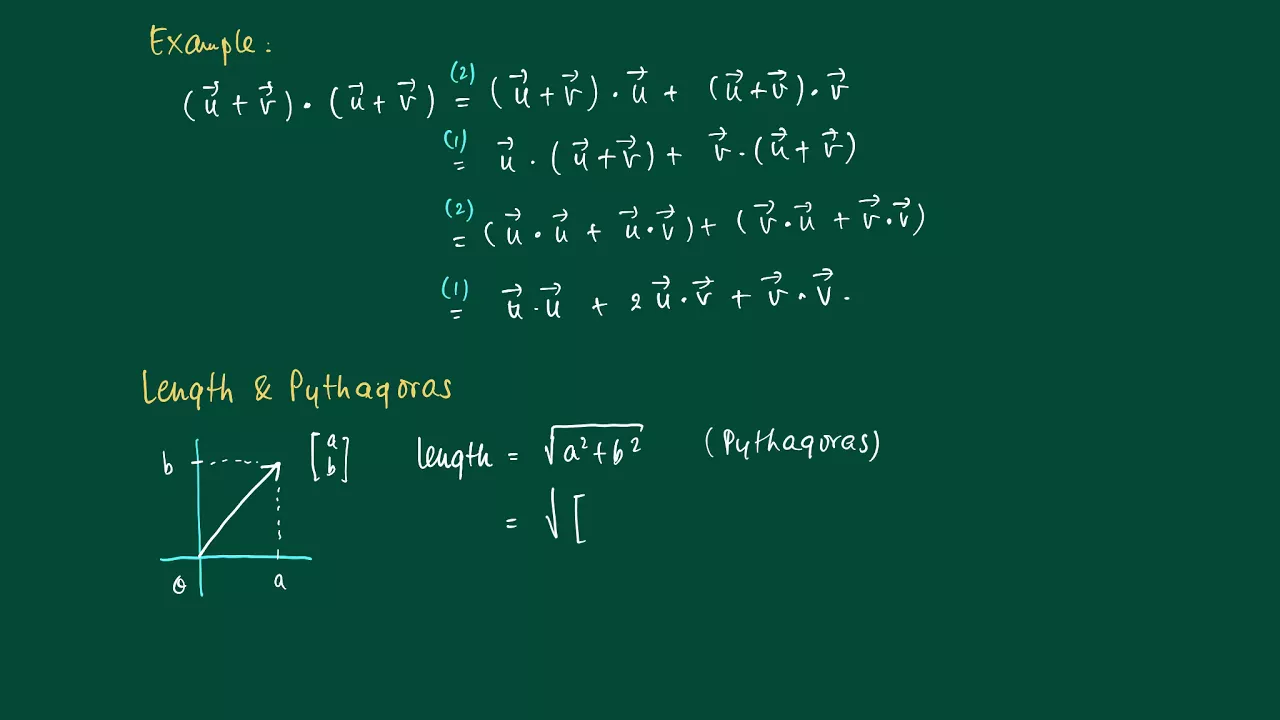 Example:
(u⃗ + v⃗) · (u⃗ + v⃗) (2) = (u⃗ + v⃗) · u⃗ + (u⃗ + v⃗) · v⃗
(1) = u⃗ · (u⃗ + v⃗) + v⃗ · (u⃗ + v⃗)
(2) = (u⃗ · u⃗ + u⃗ · v⃗) + (v⃗ · u⃗ + v⃗ · v⃗)
(1) = u⃗ · u⃗ + 2 u⃗ · v⃗ + v⃗ · v⃗.
Length & Pythagoras
b [a b] length = √(a² + b²) (Pythagoras)
= √[
0 a